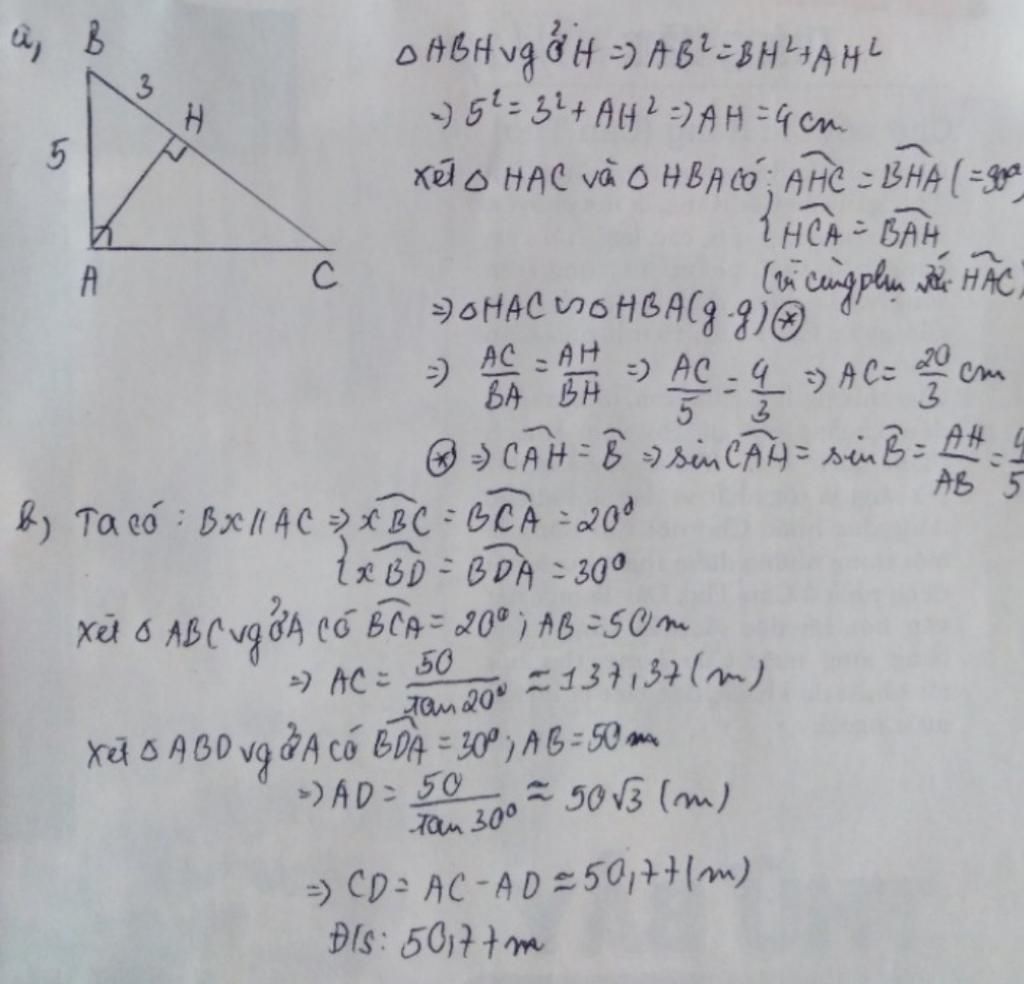 a, B
3
H
5
A
C
△ABH vg ở H => AB² = BH² + AH²
=> 5² = 3² + AH² => AH = 4 cm
Xét △ HAC và △ HBA có: { AHC^ = BHA^ (= 90°)
HCA^ = BAH^
(vì cùng phụ với HAC^)
=> △HAC ∽ △HBA (g.g) (*)
=> AC/BA = AH/BH => AC/5 = 4/3 => AC = 20/3 cm
(*) => CAH^ = B^ => sin CAH^ = sin B^ = AH/AB = 4/5
b, Ta có: Bx // AC => { xBC^ = BCA^ = 20°
xBD^ = BDA^ = 30°
Xét △ ABC vg ở A có BCA^ = 20°; AB = 50 m
=> AC = 50/tan 20° ≈ 137,37 (m)
Xét △ ABD vg ở A có BDA^ = 30°; AB = 50 m
=> AD = 50/tan 30° ≈ 50√3 (m)
=> CD = AC - AD ≈ 50,77 (m)
Đ/s: 50,77 m